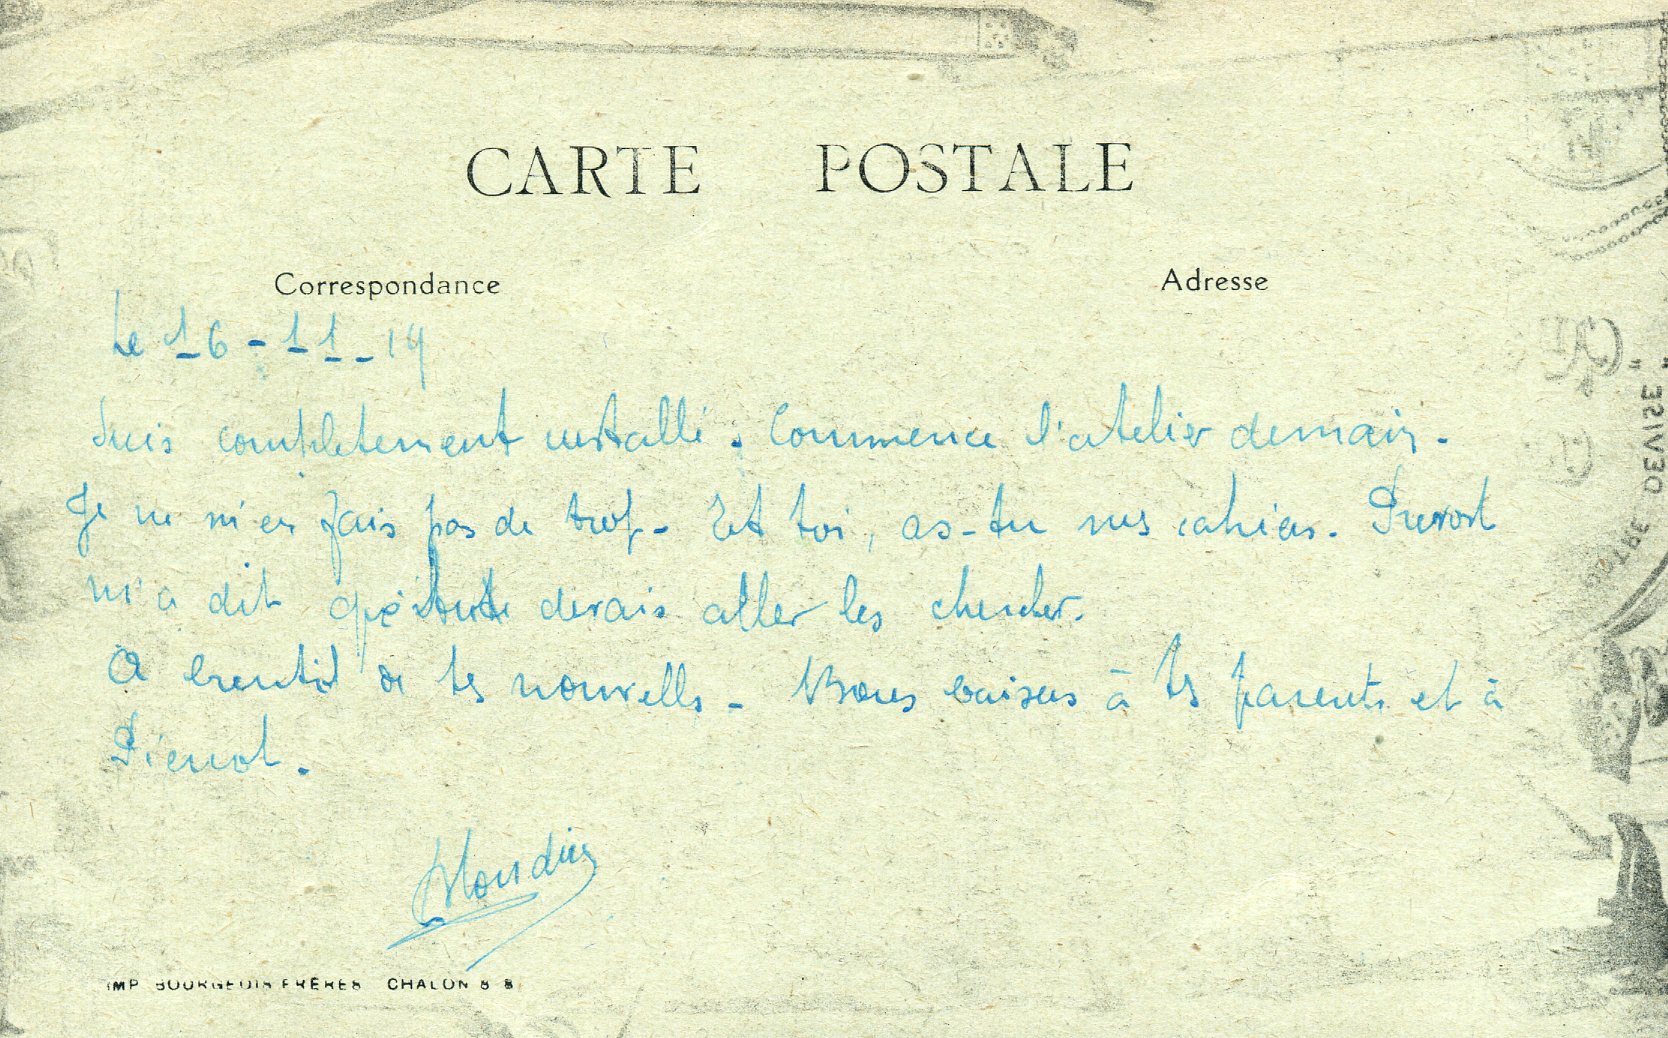 CARTE POSTALE
Correspondance
Adresse
Le 16-11-19
Suis complètement installé. Commence l'atelier demain.
Je ne m'en fais pas de trop. Et toi, as-tu mes cahiers. Prevost
m'a dit que tu devais aller les chercher.
A bientôt de tes nouvelles - Bons baisers à tes parents et à
Pierrot.
IMP BOURGEOIS FRÈRES CHALON S S
DEVISE